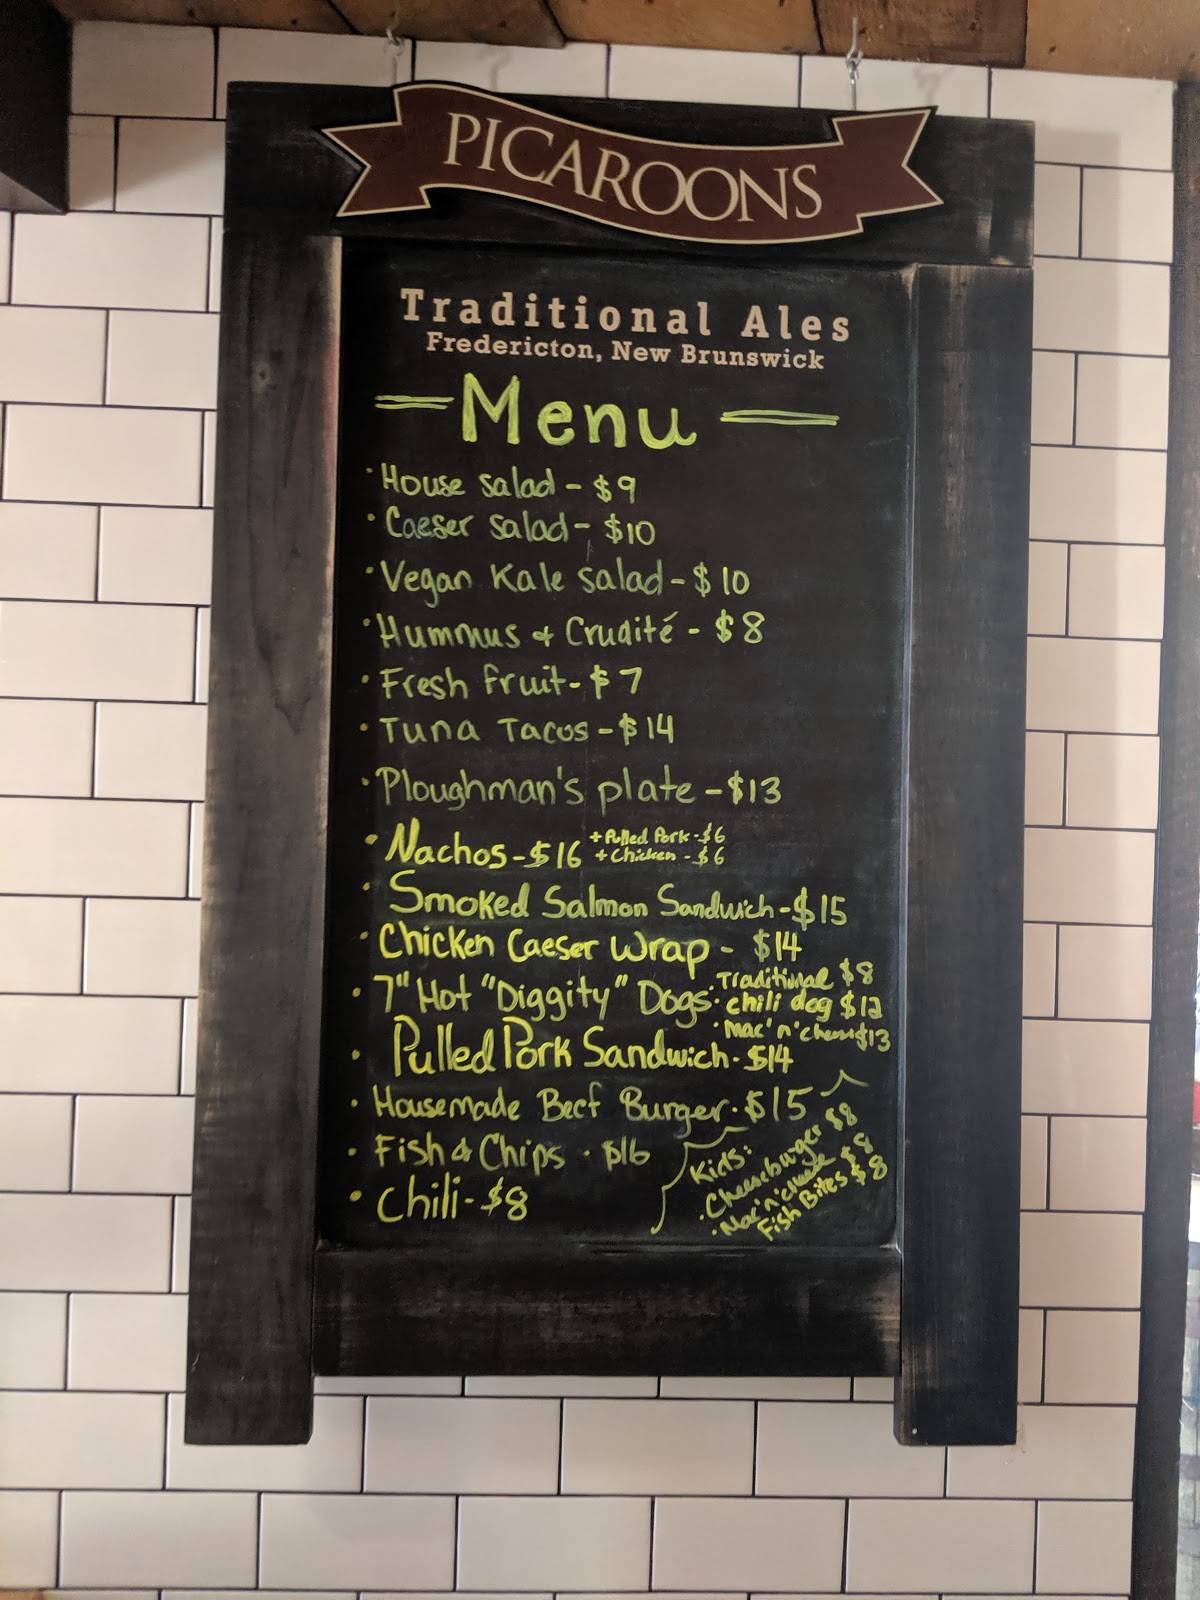 PICAROONS
Traditional Ales
Fredericton, New Brunswick
Menu
· House salad - $9
· Caeser salad - $10
· Vegan Kale salad - $10
· Hummus & Crudité - $8
· Fresh fruit - $7
· Tuna Tacos - $14
· Ploughman's plate - $13
· Nachos - $16 + Pulled Pork - $6
+ Chicken - $6
· Smoked Salmon Sandwich - $15
· Chicken Caeser Wrap - $14
· 7" Hot "Diggity" Dogs: · Traditional $8
· chili dog $12
· Mac'n'cheese $13
· Pulled Pork Sandwich · $14
· Housemade Beef Burger · $15
· Fish & Chips · $16
· Chili - $8
Kids:
· Cheeseburger $8
· Mac'n'cheese $8
Fish Bites $8